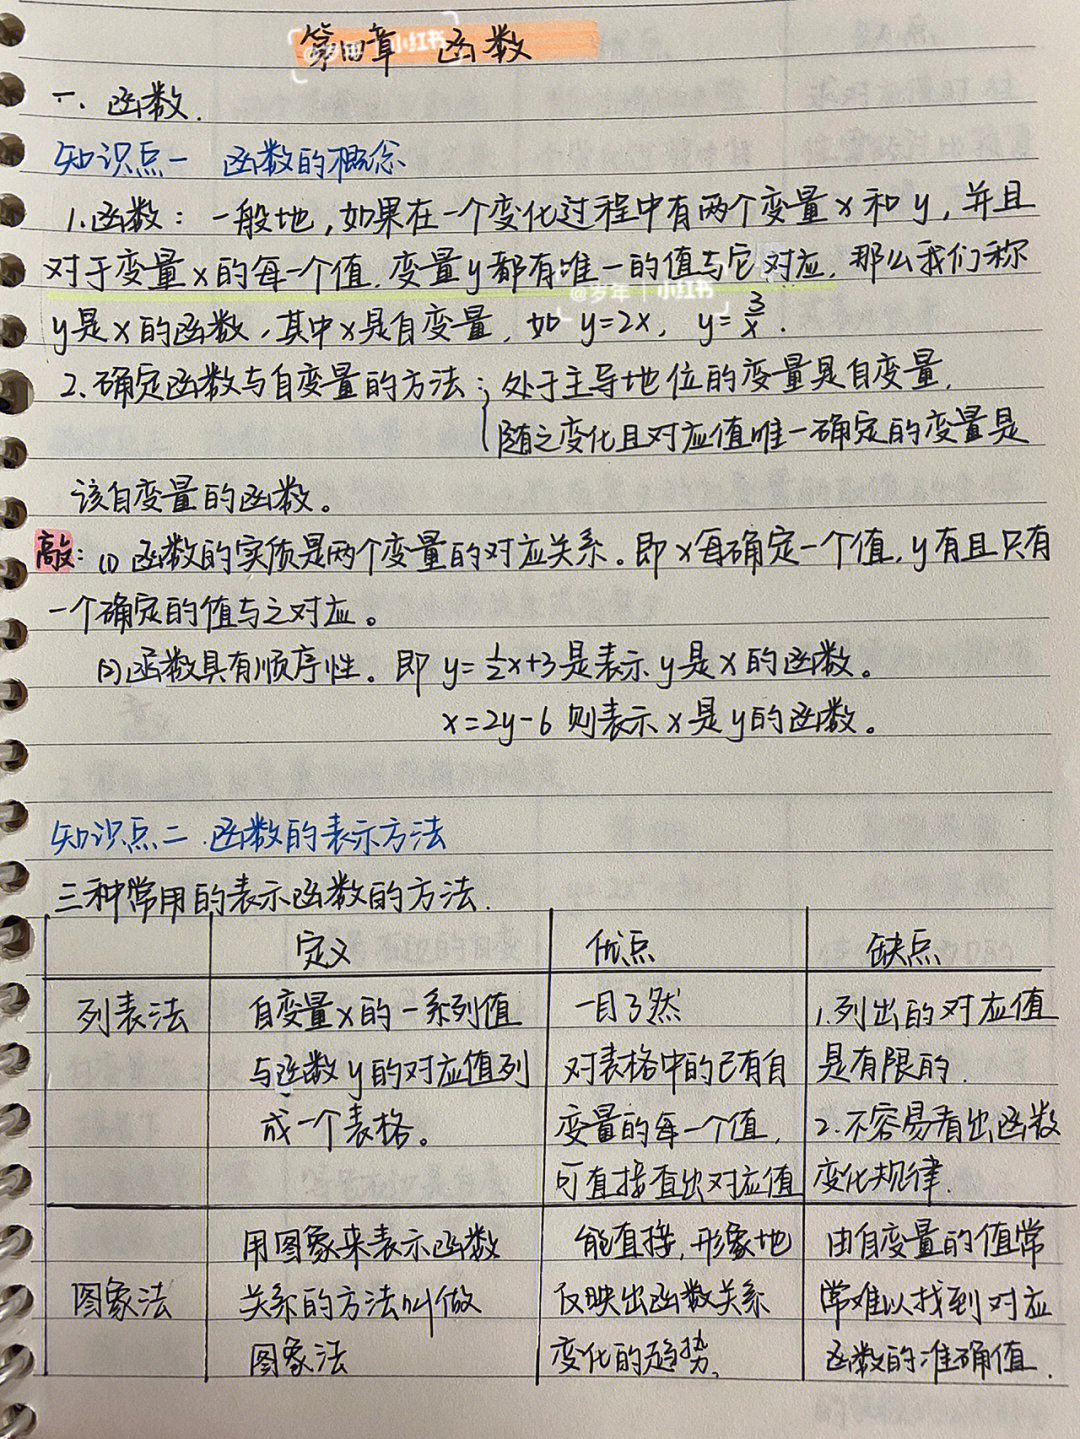 第四章 函数
一、函数.
知识点一 函数的概念
1.函数：一般地,如果在一个变化过程中有两个变量x和y,并且
对于变量x的每一个值,变量y都有唯一的值与它对应,那么我们称
@岁年 | 小红书
y是x的函数,其中x是自变量,如 y=2x, y=3/x.
2.确定函数与自变量的方法;处于主导地位的变量是自变量,
随之变化且对应值唯一确定的变量是
该自变量的函数。
敲：(1)函数的实质是两个变量的对应关系。即x每确定一个值,y有且只有
一个确定的值与之对应。
(2)函数具有顺序性。即 y=1/2x+3是表示y是x的函数。
x=2y-6 则表示x是y的函数。
知识点二.函数的表示方法
三种常用的表示函数的方法.
定义 优点 缺点
列表法 自变量x的一系列值 一目了然 1.列出的对应值
与函数y的对应值列 对表格中的已有自 是有限的.
成一个表格。 变量的每一个值, 2.不容易看出函数
可直接查出对应值 变化规律.
用图象来表示函数 能直接,形象地 由自变量的值常
图象法 关系的方法叫做 反映出函数关系 常难以找到对应
图象法 变化的趋势, 函数的准确值.